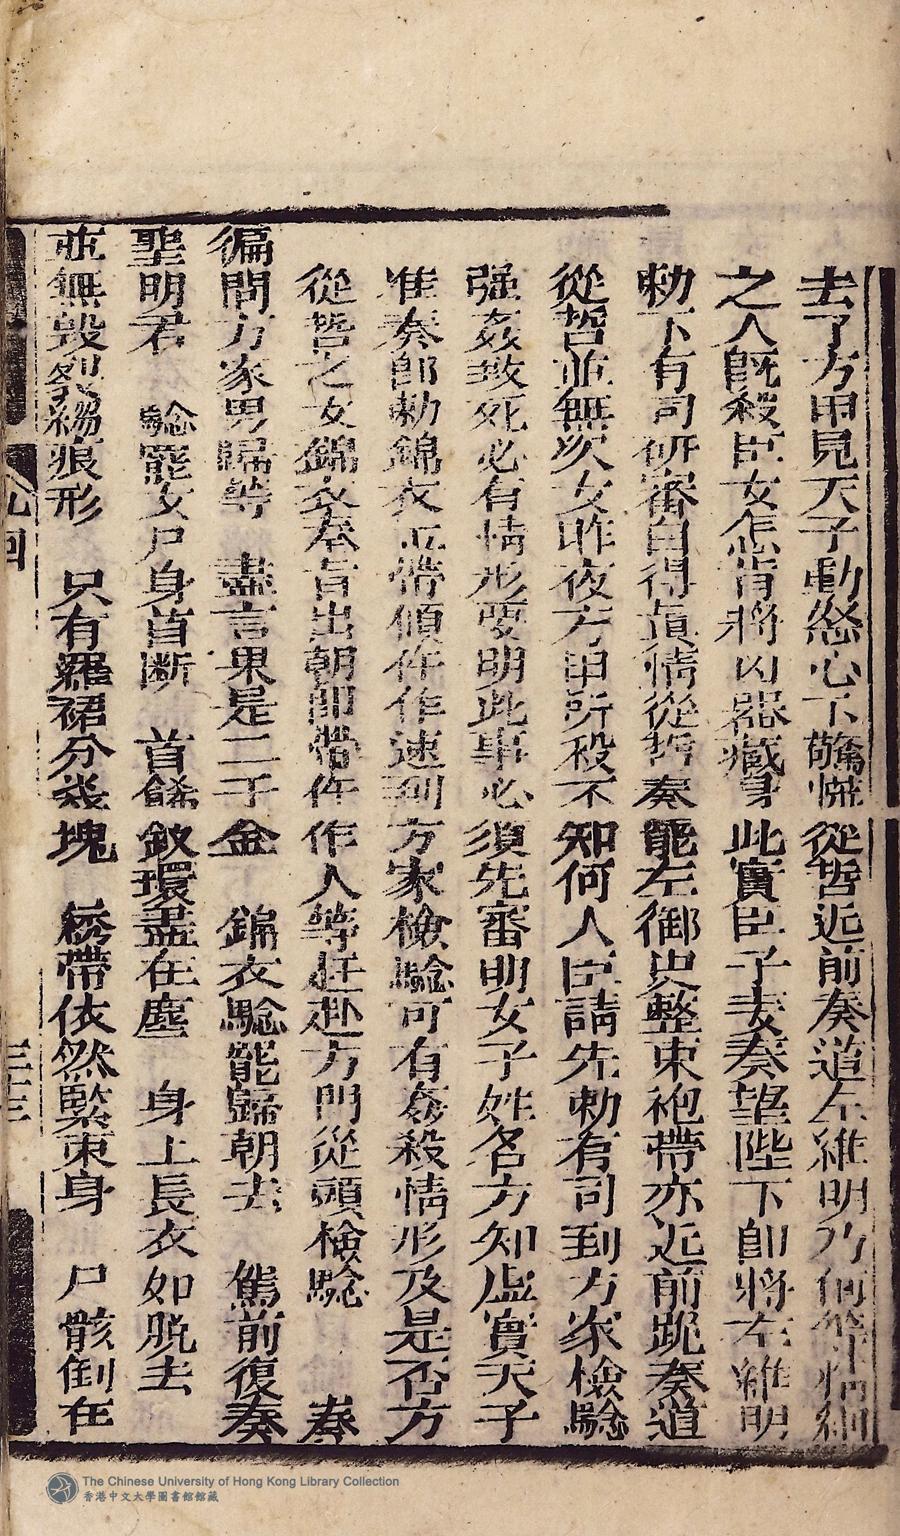 去了方甲見天子動慾心下驚慌從哲近前奏道左維明乃何等情
之人既殺臣女怎肯將凶器藏身此實臣子夫奏望陛下卽將左維明
勅下有司研審自得眞情從哲奏罷左御史整束袍帶亦近前跪奏道
從哲並無次女昨夜方甲所殺不知何人臣請先勅有司到方家檢驗
强姦致死必有情形要明此事必須先審明女子姓名方知虛實天子
准奏卽勅錦衣正帶領仵作速到方家檢驗可有姦殺情形及是否方
從哲之女錦衣奉旨出朝卽帶仵作人等赶赴方門從頭檢驗 奏
徧問方家男婦等 盡言果是二千金 錦衣驗罷歸朝去 駕前復奏
聖明君 驗罷女尸身首斷 首餙釵環盡在塵 身上長衣如脫去
並無毀裂綉痕形 只有羅裙分幾塊 綉帶依然緊束身 尸骸倒在
九回
三十三
The Chinese University of Hong Kong Library Collection
香港中文大學圖書館館藏